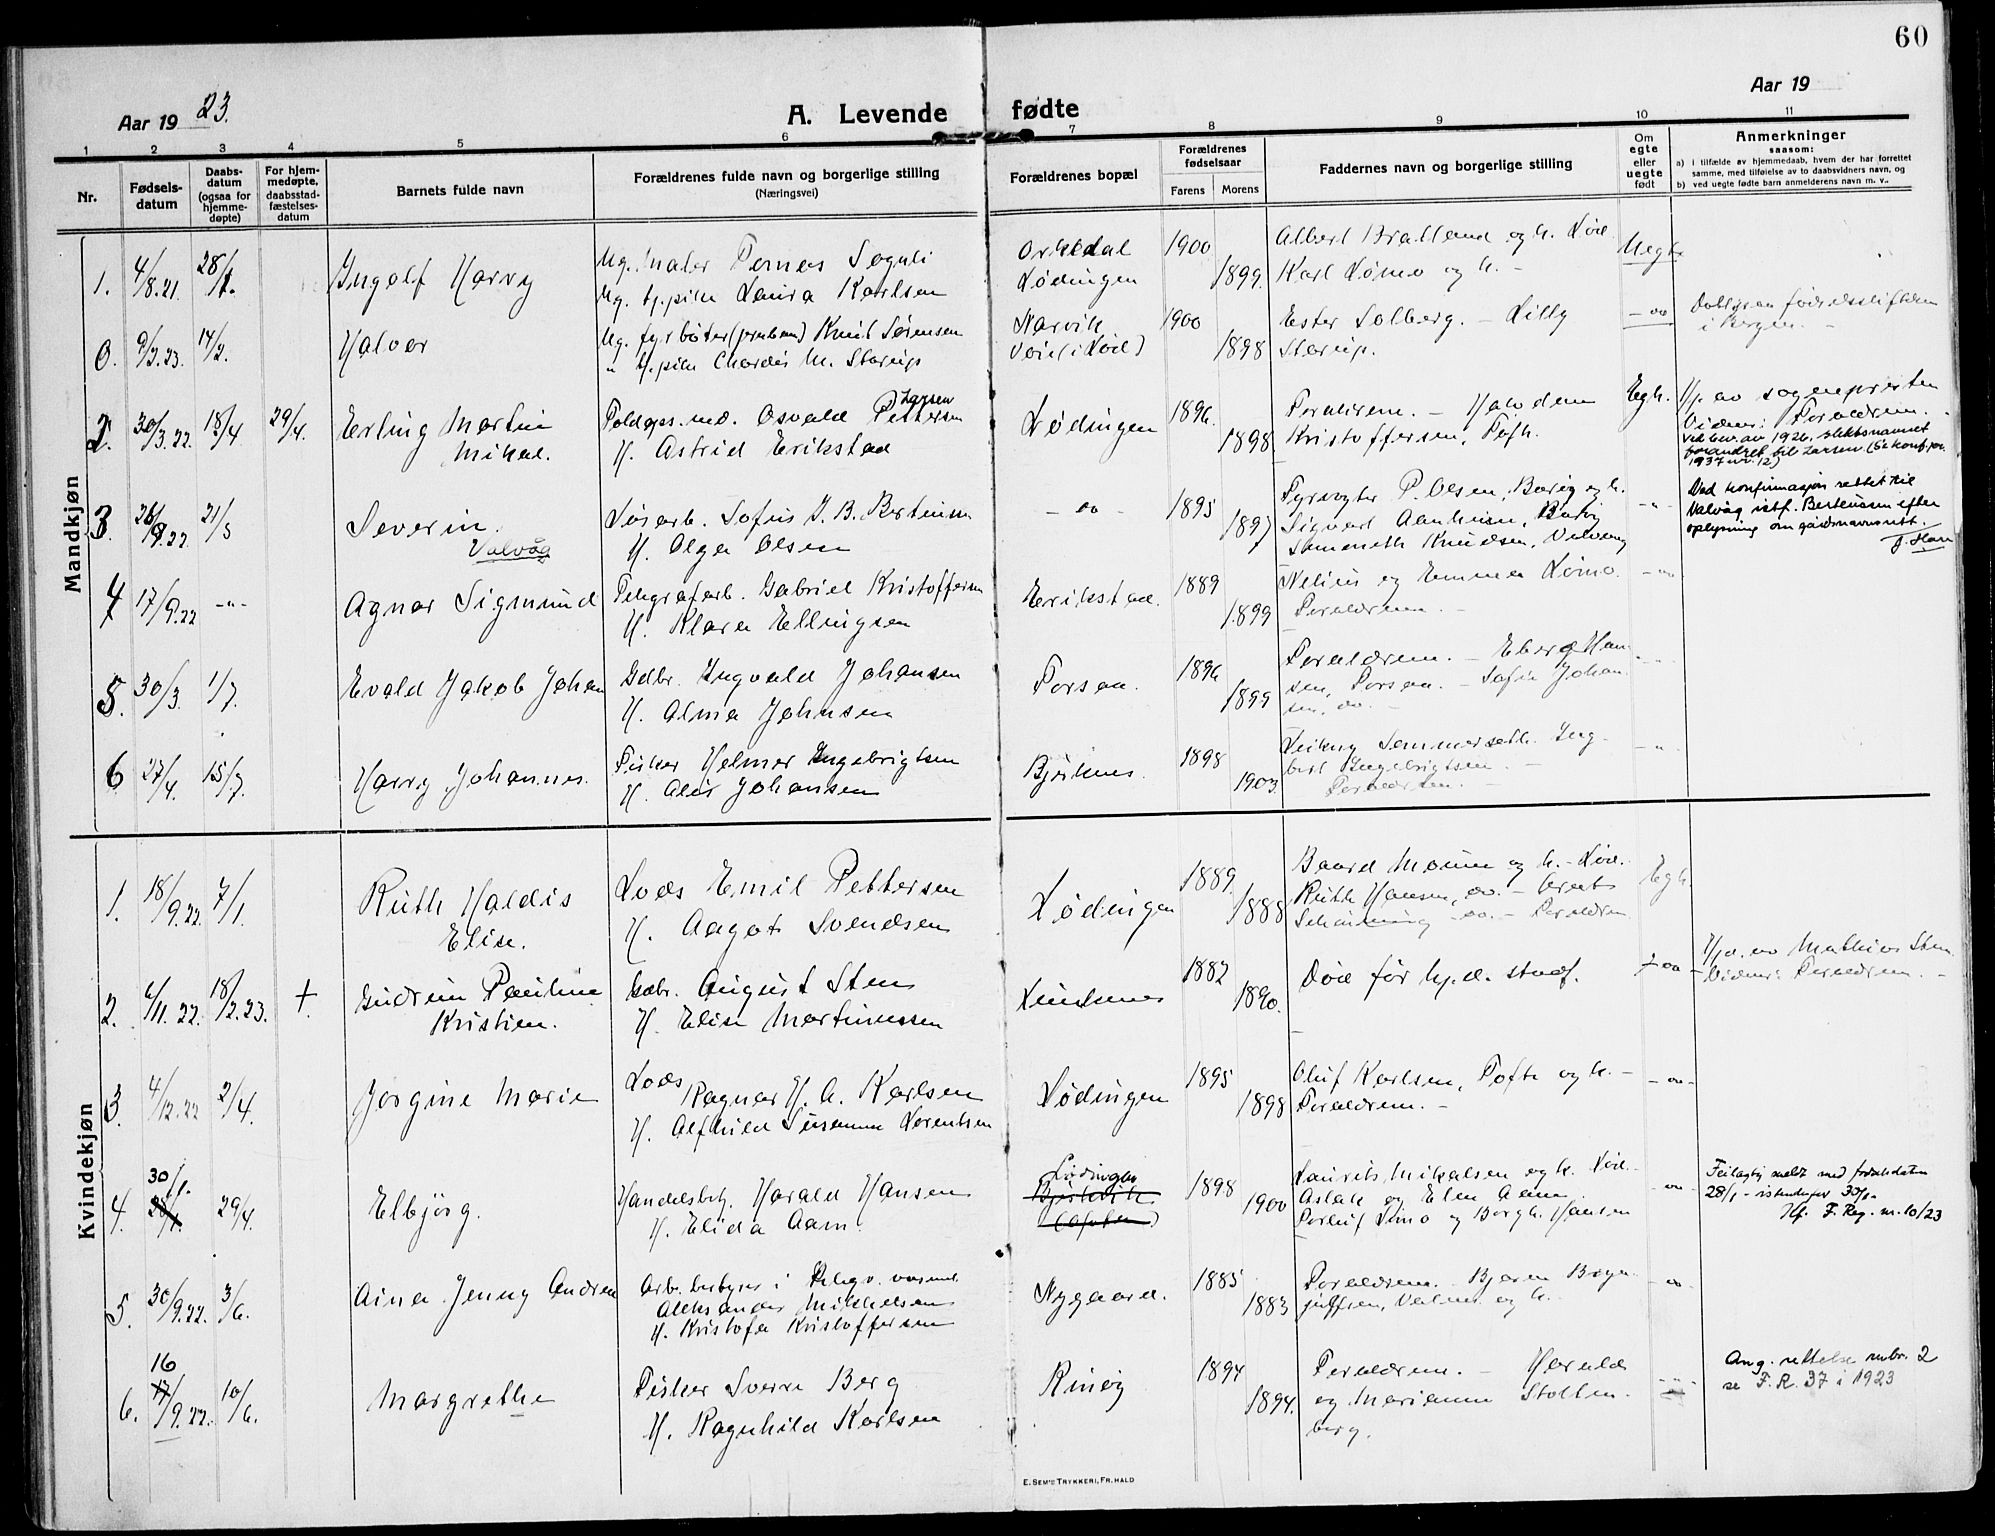 60
Aar 19 23.
A. Levende fødte
Aar 19
1 2 3 4 5 6 7 8 9 10 11
Nr.
Fødsels-
datum
Daabs-
datum
(ogsaa for
hjemme-
døpte)
For hjem-
medøpte,
daabsstad-
fæstelses-
datum
Barnets fulde navn
Forældrenes fulde navn og borgerlige stilling
(Næringsvei)
Forældrenes bopæl
Forældrenes
fødselsaar
Farens Morens
Faddernes navn og borgerlige stilling
Om
egte
eller
uegte
født
Anmerkninger
saasom:
a) i tilfælde av hjemmedaab, hvem der har forrettet
samme, med tilføielse av to daabsvidners navn, og
b) ved uegte født barn anmelderens navn m. v..
Mandkjøn
1. 4/8.21. 28/1. Ingolf Harry
Ug. maler
Ug. tj.pike Laura Karlsen
Orkedal
Lødingen
1900
1899.
Albert Bratland og h. Lød.
Karl Lømo og h. -
Uegte
0. 9/2.23. 14/2. Halvor
Ug. fyrbøter Knut Sørensen
" tj.pike M. Storup
Narvik
1900
1898
Ester Solberg. - Lilly
Storup.
- " -
i Bergen. -
2. 30/3.22. 18/4 29/4. Erling Martin
Mikal.
Osvald Pettersen
Larsen
H. Astrid Erikstad
Lødingen
1896.
1898.
Forældrene. - Halvdan
Kristoffersen, Tofte.
Egte.
H/d. av sognepresten
Vidner: Forældrene.
Ved bev. av 1926. slektsnavnet
forandret til Larsen. (Se konf.pr.
1937 nr. 12)
3. 26/8.22. 21/5 Severin.
Valvåg
Sofus J. B. Bertinussen
H. Olga Olsen
- " -
1895
1897
P. Olsen, Barøy og h.
Sigvart Aanhusen, Barøy
Knudsen, Valvaag
- " -
Ved konfirmasjon rettet til
Valvåg istf. Bertinussen efter
oplysning om gårdsnavnsrett.
4 17/9.22 - " - Agnar Sigmund
Telegrafarb. Gabriel Kristoffersen
H. Klara Ellingsen
Erikstad.
1889
1899
Nelius og Emma Lømo.
Forældrene. -
- " -
5. 30/3. 1/7. Evald Jakob Johan
Gdbr. Ingvald Johansen
H. Alma Johnsen
Forsaa.
1896
1899
Forældrene. - Eberg Han-
sen, Forsaa. - Sofie Johan-
sen, do. -
- " -
6 27/4. 15/7. Harry Johannes.
Fisker Helmer Ingebrigtsen
H. Alis Johansen
Bjerknes.
1898
1903.
Sommerseth. Ing-
bert Ingebrigtsen. -
Forældrene. -
- " -
Kvindekjøn
1. 18/9.22. 7/1. Ruth Haldis
Elise.
Lods Emil Pettersen
H. Aagot Svendsen
Lødingen
1889.
1888
Baard Moum og h. - Lød.
Ruth Hansen, do. - Arnt
Schanning do. - Forældrene
Egte.
2. 6/11.22. 18/2.23. + Gudrun Pauline
Kristien.
Gdbr. August Sten
H. Elise Martinussen
1882
1890.
Død før hj.d. stadf.
- " -
H/d. av Mathias Sten
Vidner: Forældrene. -
3. 4/12.22 2/4. Jørgine Marie
Lods Ragnar H. A. Karlsen
H. Alfhild Susanna Lorentsen
Lødingen
1895
1898
Oluf Karlsen, Tofte og h. -
Forældrene. -
- " -
4. 30/1. 28/1. 29/4. Elbjørg.
Handelsbetj. Harald Hansen
H. Elida Aam.
Lødingen
Bjerkvik
(Ofoten)
1898
1900
Laurits Mikalsen og h. Lød.
Aslak og Elen Aam.
Torleif Simo og Borgh. Hansen
- " -
Feilagtig meldt med fødselsdatum
28/1 - istedenfor 30/1.
Jfr. F. Reg. nr. 10/23
5. 30/9.22. 3/6. Aina Jenny Andrea
Arb. bestyrer i
Aleksander Mikkelsen
H. Kristofa Kristoffersen
Nygaard.
1885
1883
Forældrene. Bjarne Bryn-
julfsen, og h. -
- " -
6. 16 17/9.22. 10/6. Margrethe
Fisker Sverre Berg
H. Ragnhild Karlsen
Rinøy
1894
1894.
Forældrene. - Harald
og Marianne Stolten-
berg.
- " -
Ang. rettelse rubr. 2
se F. R. 37 i 1923
E. SEM's TRYKKERI, FR.HALD